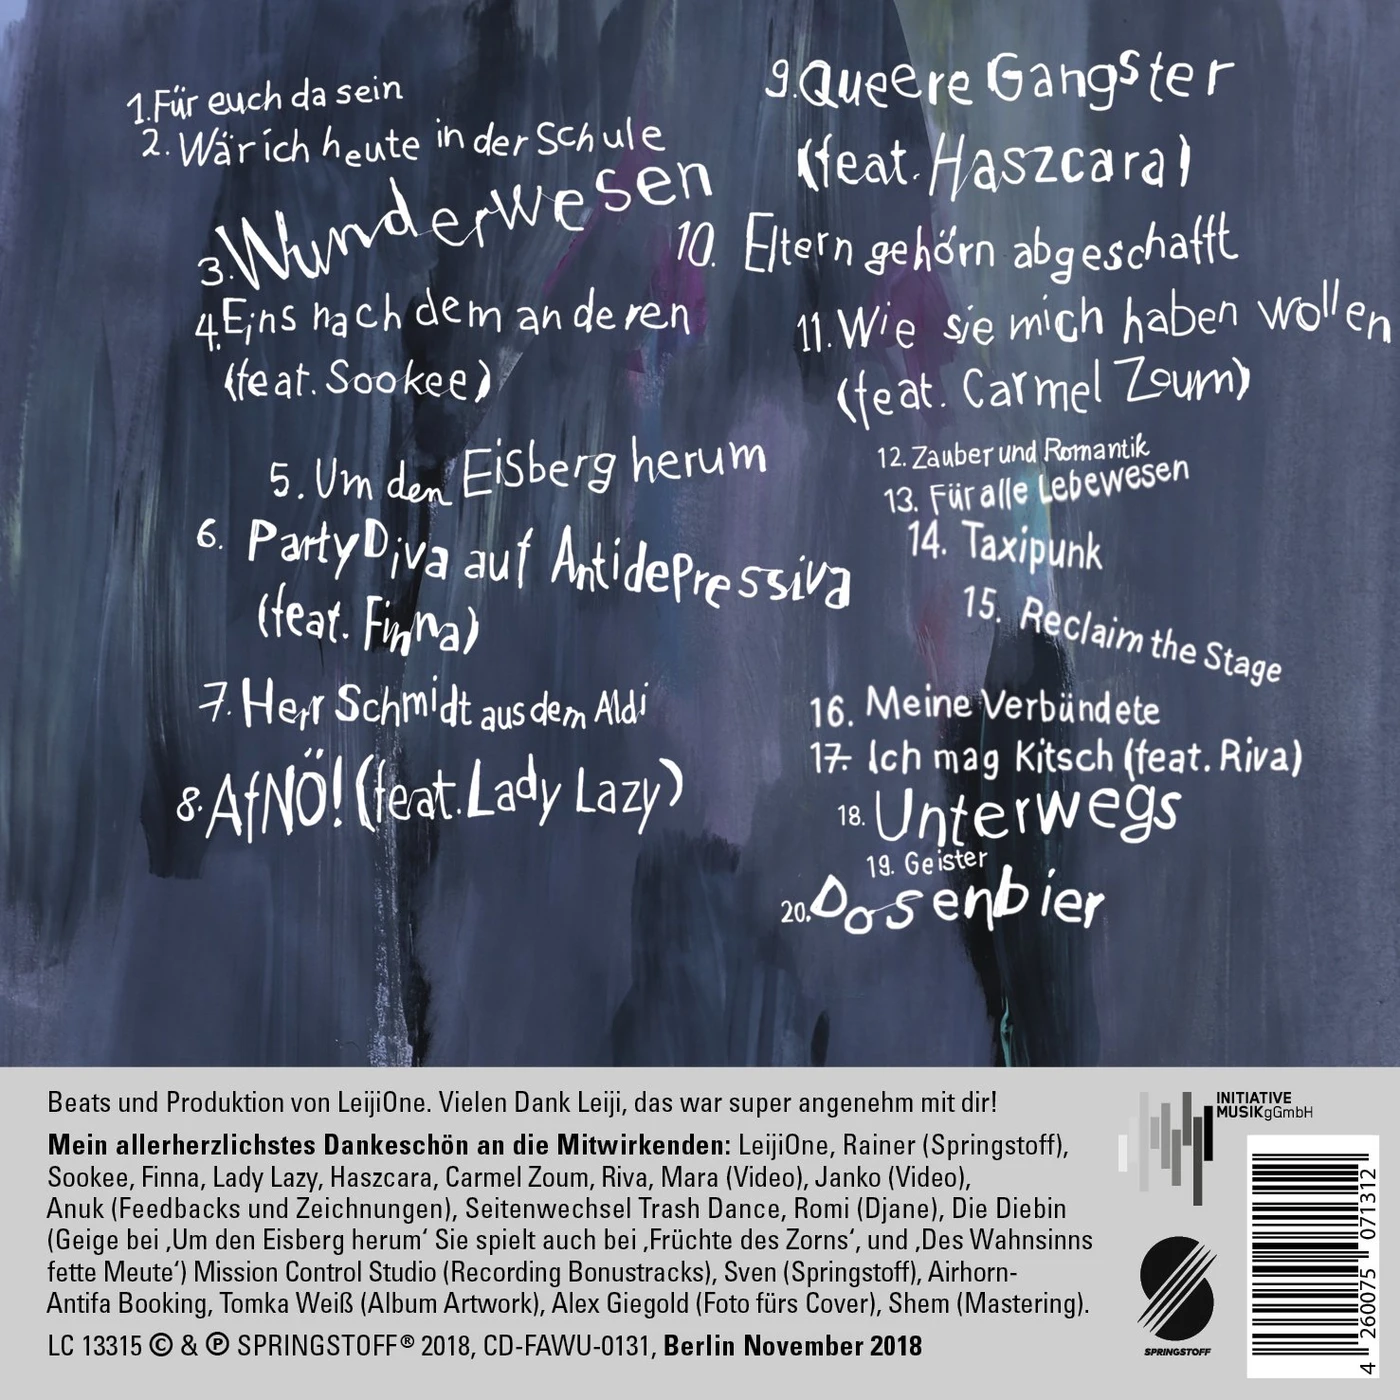 1. Für euch da sein
2. Wär ich heute in der Schule
3. Wunderwesen
4. Eins nach dem anderen
(feat. Sookee)
5. Um den Eisberg herum
6. PartyDiva auf Antidepressiva
(feat. Finna)
7. Herr Schmidt aus dem Aldi
8. AfNÖ! (feat. Lady Lazy)
9. Queere Gangster
(feat. Haszcara)
10. Eltern gehörn abgeschafft
11. Wie sie mich haben wollen
(feat. Carmel Zoum)
12. Zauber und Romantik
13. Für alle Lebewesen
14. Taxipunk
15. Reclaim the Stage
16. Meine Verbündete
17. Ich mag Kitsch (feat. Riva)
18. Unterwegs
19. Geister
20. Dosenbier
Beats und Produktion von LeijiOne. Vielen Dank Leiji, das war super angenehm mit dir!
Mein allerherzlichstes Dankeschön an die Mitwirkenden: LeijiOne, Rainer (Springstoff),
Sookee, Finna, Lady Lazy, Haszcara, Carmel Zoum, Riva, Mara (Video), Janko (Video),
Anuk (Feedbacks und Zeichnungen), Seitenwechsel Trash Dance, Romi (Djane), Die Diebin
(Geige bei ‚Um den Eisberg herum‘ Sie spielt auch bei ‚Früchte des Zorns‘, und ‚Des Wahnsinns
fette Meute‘) Mission Control Studio (Recording Bonustracks), Sven (Springstoff), Airhorn-
Antifa Booking, Tomka Weiß (Album Artwork), Alex Giegold (Foto fürs Cover), Shem (Mastering).
LC 13315 © & ℗ SPRINGSTOFF® 2018, CD-FAWU-0131, Berlin November 2018
INITIATIVE
MUSIKgGmbH
SPRINGSTOFF
4 260075 071312